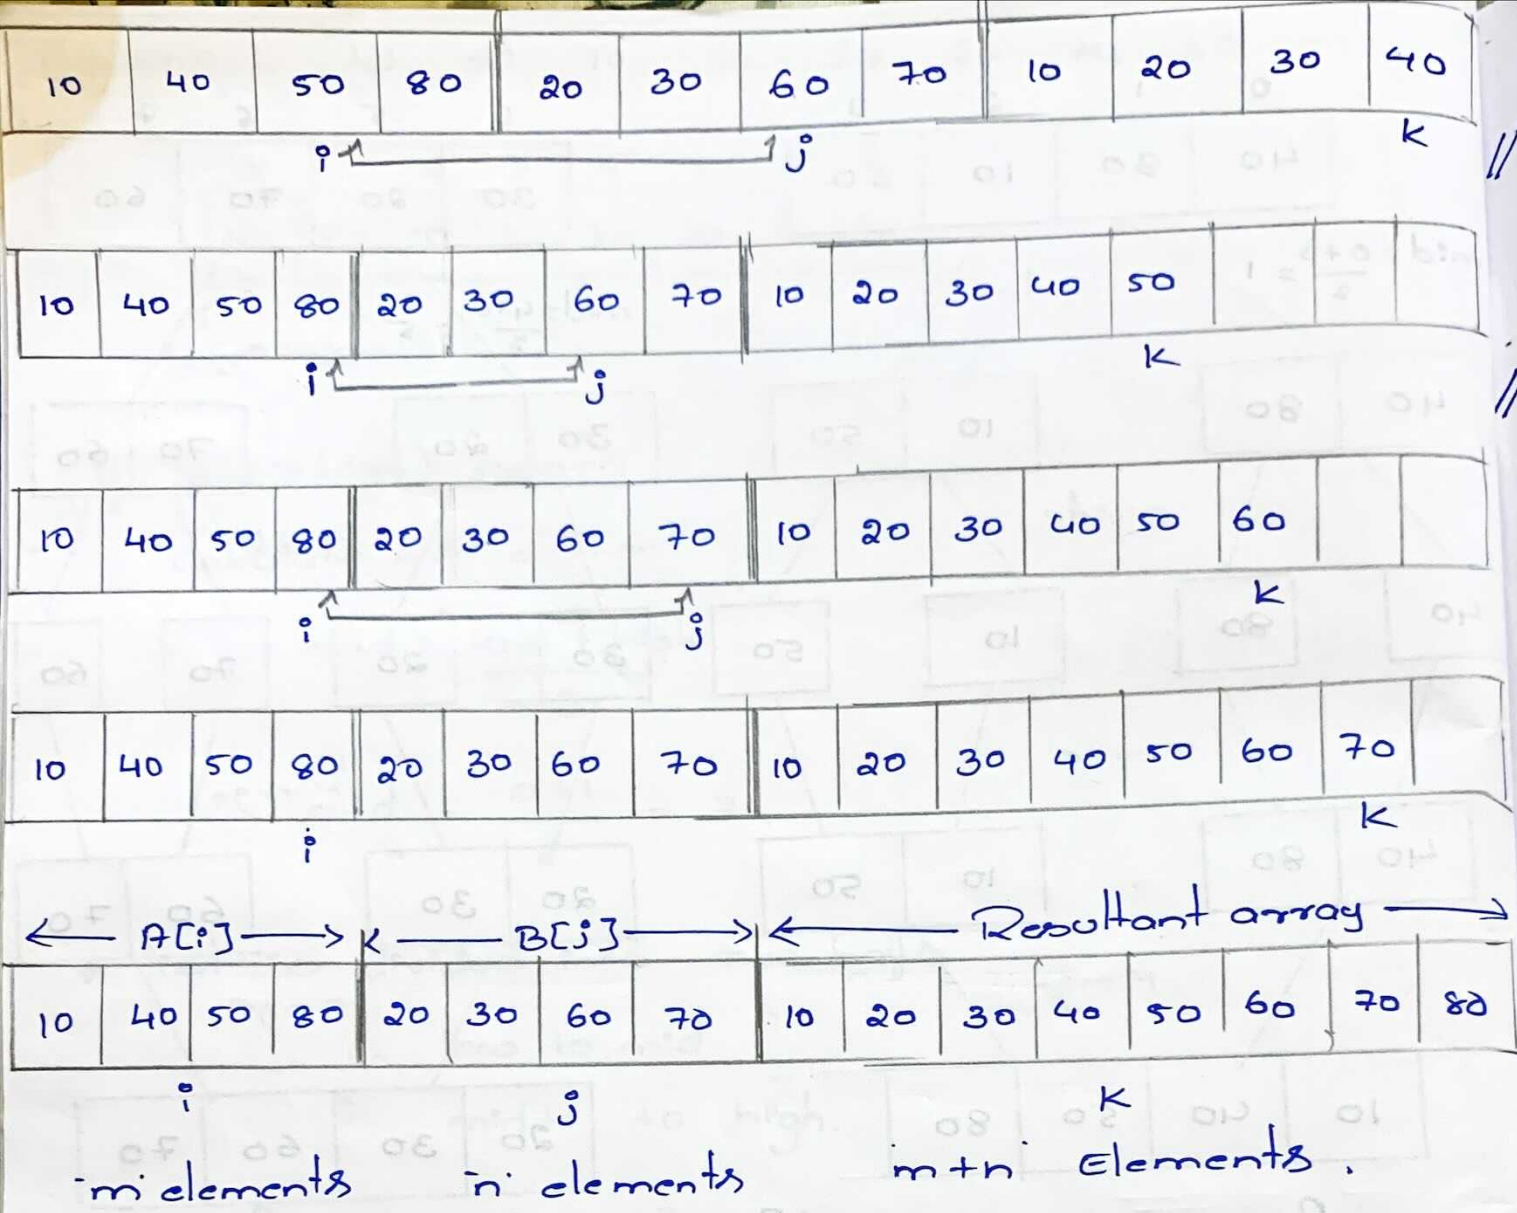 10 40 50 80 20 30 60 70 10 20 30 40
i j k
10 40 50 80 20 30 60 70 10 20 30 40 50
i j k
10 40 50 80 20 30 60 70 10 20 30 40 50 60
i j k
10 40 50 80 20 30 60 70 10 20 30 40 50 60 70
i k
A[i] B[j] Resultant array
10 40 50 80 20 30 60 70 10 20 30 40 50 60 70 80
i j k
'm' elements 'n' elements m+n Elements.